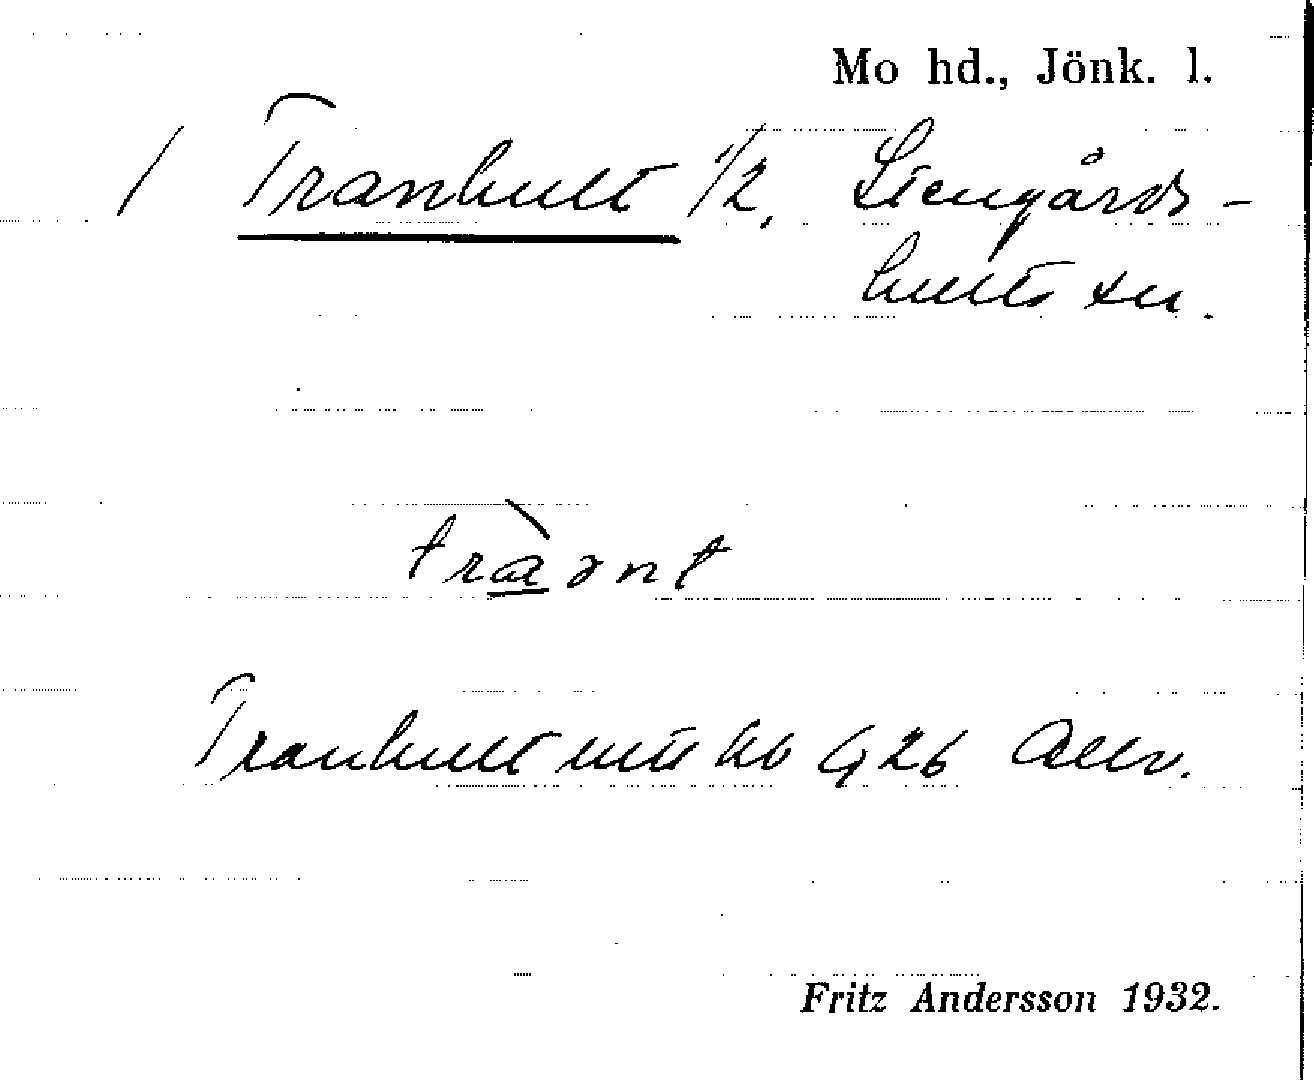 Mo hd., Jönk. l.
/ Tranhult 1/2, Stengårds-
hults sn.
tràənt
Tranhult
Fritz Andersson 1932.